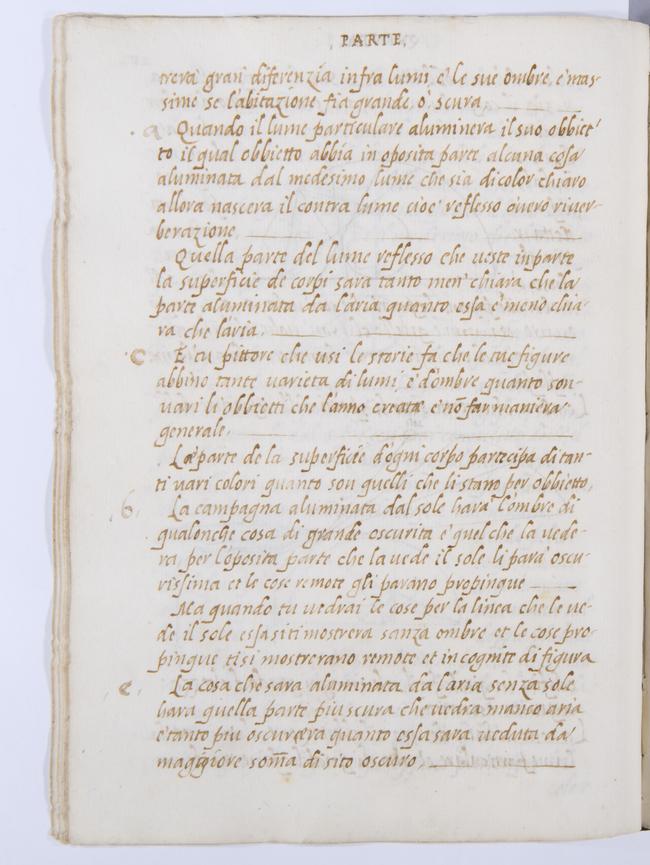 PARTE.
trera gran diferenzia infra lumi, e' le sue ombre, e' mas-
sime se l'abitazione fia grande, o' scura
a Quando il lume particulare aluminera il suo obbiet'
to il qual obbietto abbia in oposita parte alcuna cosa
aluminata dal medesimo lume che sia di color chiaro
allora nascera il contra lume cioe' reflesso overo river-
berazione.
Quella parte del lume reflesso che veste in parte
la superficie de corpi sara tanto men' chiara che la
parte aluminata da l'aria quanto essa e' meno chia-
ra che l'aria.
C E tu pittore che usi le storie fa che le tue figure
abbino tante varieta di lumi, e' d'ombre quanto son-
vari li obbietti che l'anno create e nõ far maniera
generale.
La parte de la superficie d'ogni corpo partecipa di tan-
ti vari colori quanto son quelli che li stano per obbietto,
6. La campagna aluminata dal sole hara' l'ombre di
qualonche cosa di grande oscurita e' quel che la vede-
ra, per l'oposita parte che la vede il sole li para' oscu-
rissima et le cose remote gli parano propinque
Ma quando tu vedrai le cose per la linea che le ve-
de il sole essa si ti mostrera sanza ombre et le cose pro-
pinque ti si mostrerano remote et incognite di figura
e. La cosa che sara aluminata da l'aria senza sole
hara quella parte piu scura che vedra manco aria
e' tanto piu oscurera quanto essa sara veduta da
maggiore som̃a di sito oscuro.